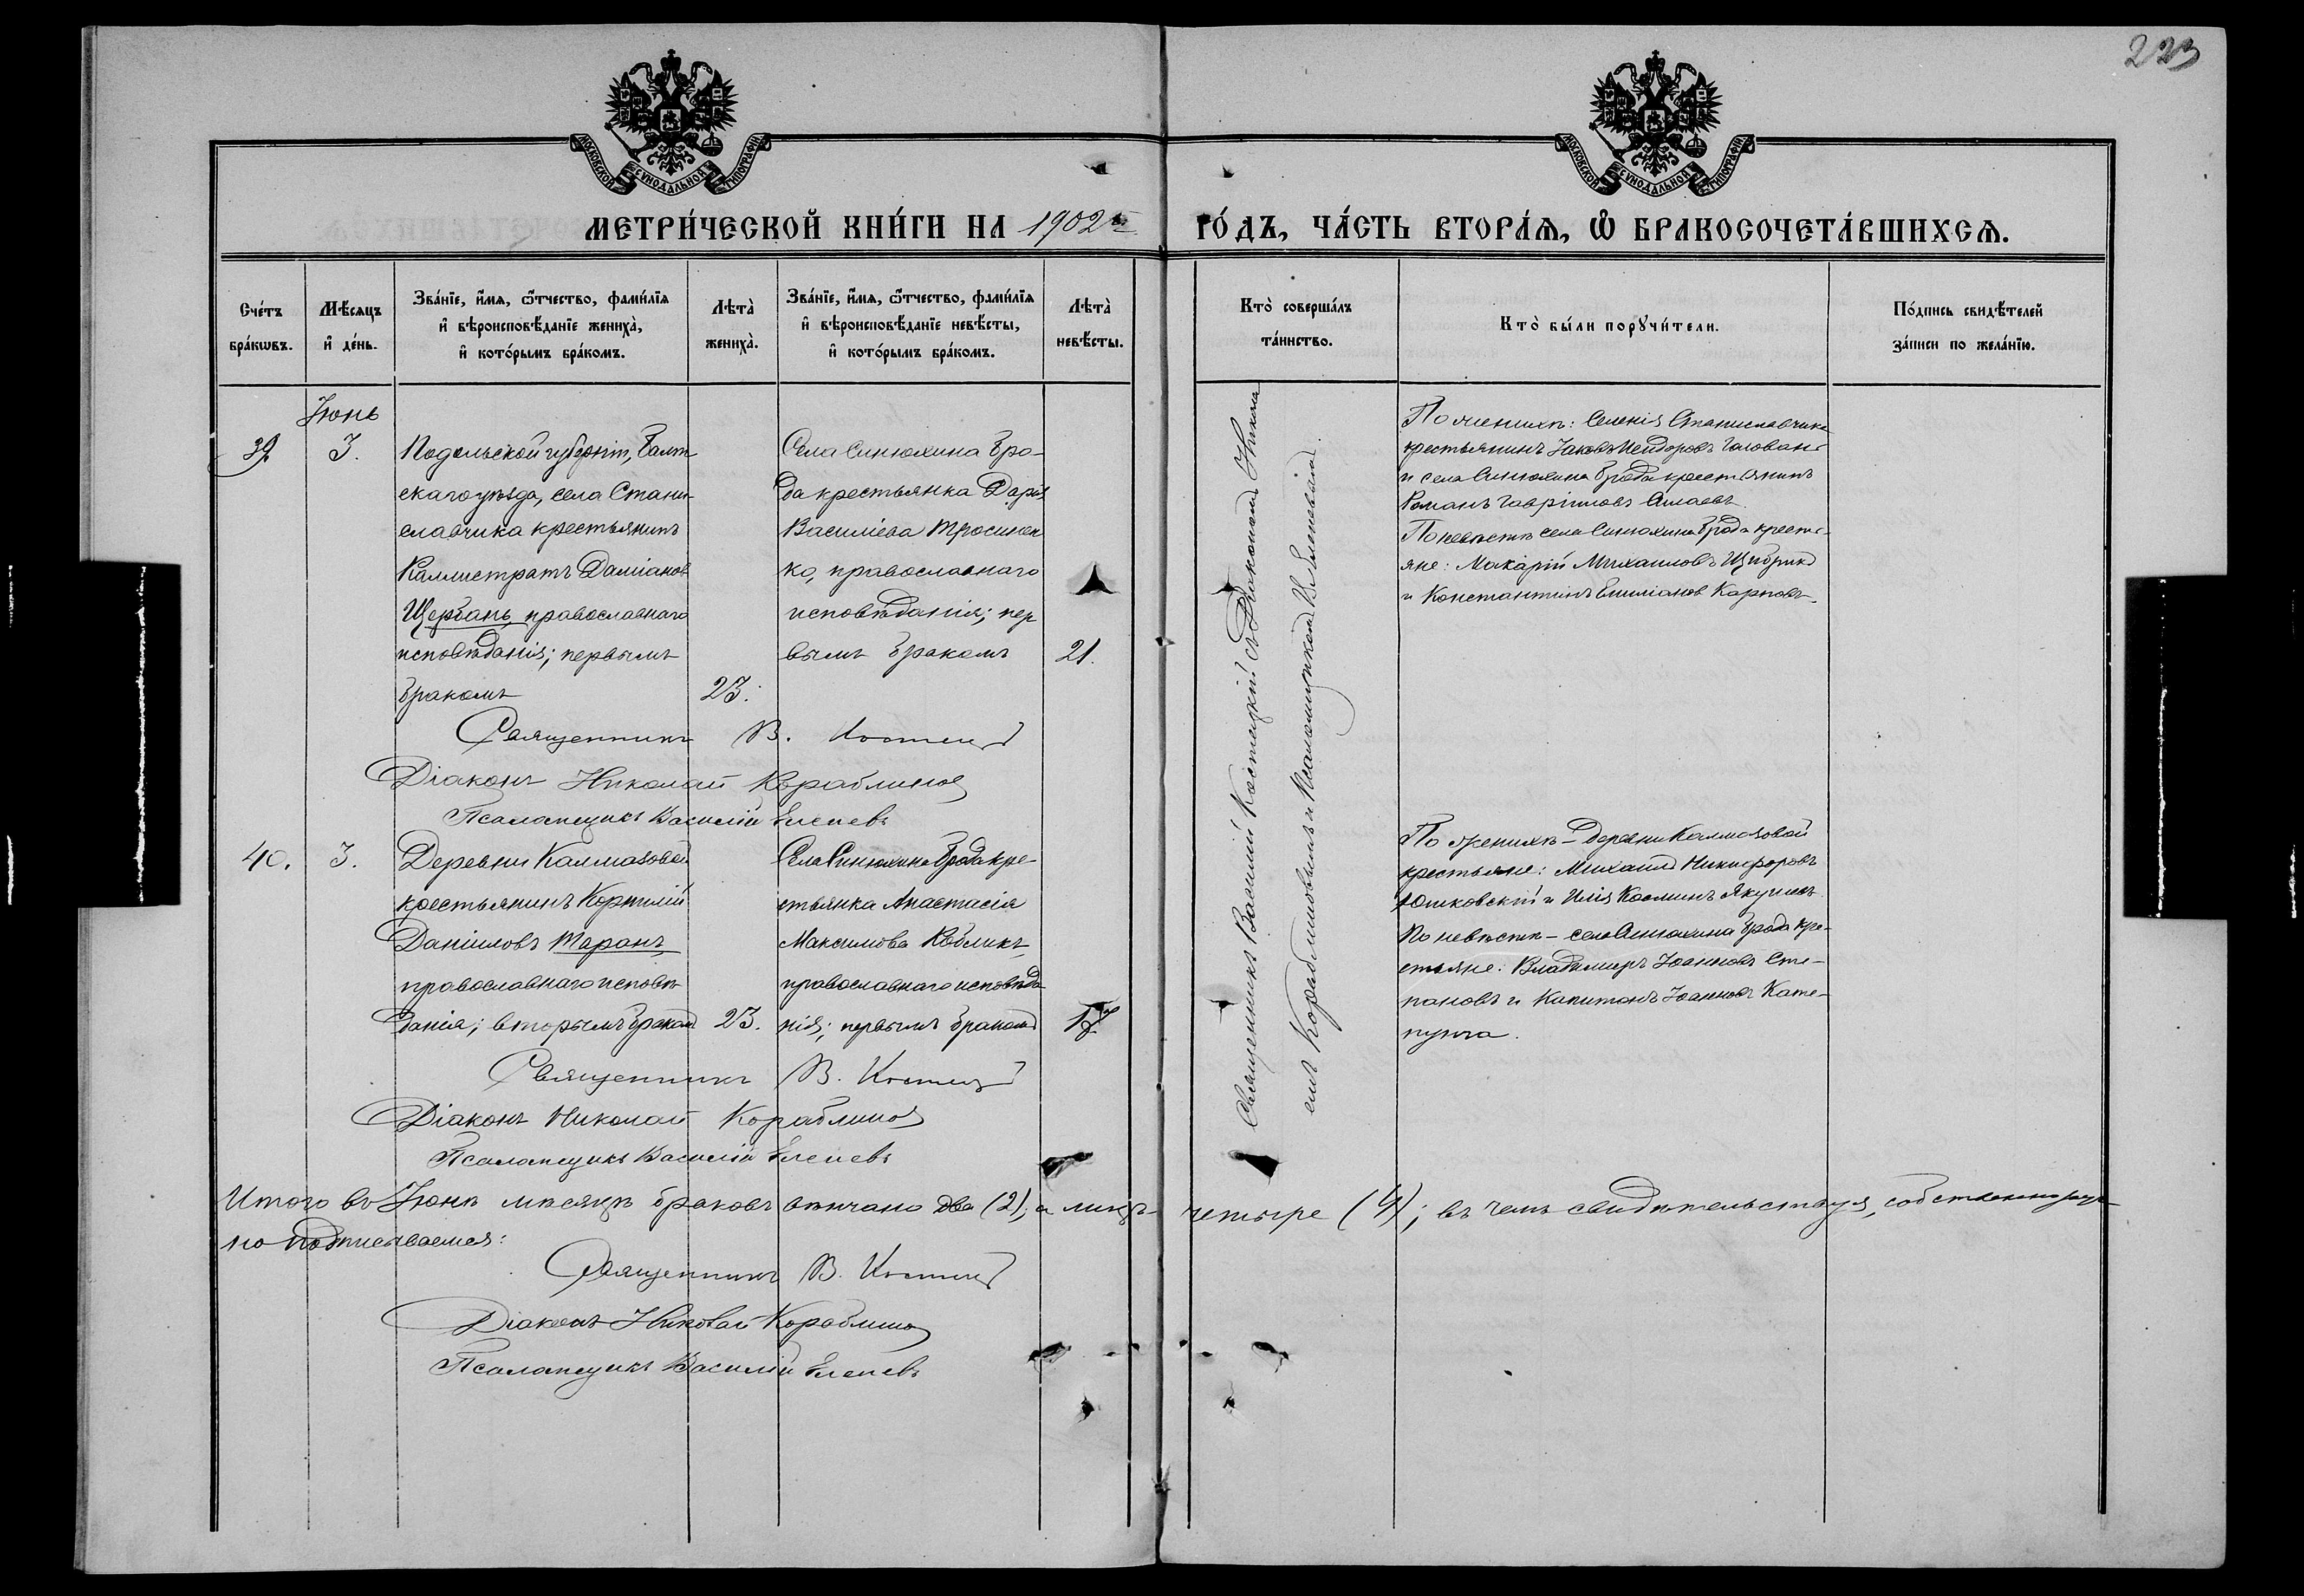 223
МОСКОВСКОЙ СУНОДАЛЬНОЙ ТИПОГРАФІИ
МОСКОВСКОЙ СУНОДАЛЬНОЙ ТИПОГРАФІИ
МЕТРИ́ЧЕСКОЙ КНИ́ГИ НА 1902й ГО́ДЪ, ЧА́СТЬ ВТОРА́Ѧ, Ѽ БРАКОСОЧЕТА́ВШИХСѦ.
Сче́тъ
бра́кѡвъ.
Мѣ́сѧцъ
и҆ де́нь.
Зва́нїе, и҆́мѧ, ѻ҆́тчество, фами́лїѧ
и҆ вѣроисповѣ́данїе жениха̀,
и҆ кото́рымъ бра́комъ.
Лѣта̀
жениха̀.
Зва́нїе, и҆́мѧ, ѻ҆́тчество, фами́лїѧ
и҆ вѣроисповѣ́данїе невѣ́сты,
и҆ кото́рымъ бра́комъ.
Лѣта̀
невѣ́сты.
Кто̀ соверша́лъ
та́инство.
Кто̀ бы́ли порꙋчи́тели.
По́дпись свидѣ́телей
за́писи по жела́нїю.
Іюнь
39.
3.
Подольской губерніи, Балт
скаго уѣзда, села Стани-
славчика крестьянинъ
Каллистратъ Даміановъ
Щербань, православнаго
исповѣданія; первымъ
бракомъ
23.
Села Синюхина Бро-
да крестьянка Дарія
Василіева Тросинен
ко, православнаго
исповѣданія; пер
вымъ бракомъ
21.
Священникъ Василій Костецкій съ Діакономъ Никола
емъ Кораблиновымъ и Псаломщикомъ В. Еленевымъ.
По женихѣ: селенія Станиславчика
крестьянинъ Іаковъ Исидоровъ Голованъ
и села Синюхина Брода крестьянинъ
Романъ Гавріиловъ
По невѣстѣ села Синюхина Брода кресть-
яне: Макарій Михаиловъ Цыбрикъ
и Константинъ Емиліановъ Карповъ.
Священникъ В. Костецкій
Діаконъ Николай Кораблиновъ
Псаломщикъ Василій Еленевъ
40.
3.
Деревни Калмазовой
крестьянинъ Корнилій
Даніиловъ Таранъ,
православнаго исповѣ-
данія; вторымъ бракомъ
23.
Села Синюхина Брода кре-
стьянка Анастасія
Максимова Кобликъ,
православнаго исповѣда
нія; первымъ бракомъ
По женихѣ – деревни Калмазовой
крестьяне: Михаилъ Никифоровъ
Юшковскій и Илія Косминъ Якушевъ
По невѣстѣ – села Синюхина Брода кре-
стьяне: Владимиръ Іоанновъ Сте-
пановъ и Капитонъ Іоанновъ Кате-
ринча.
Священникъ В. Костецкій
Діаконъ Николай Кораблиновъ
Псаломщикъ Василій Еленевъ
Итого въ Іюнѣ мѣсяцѣ браковъ вѣнчано два (2), а лицъ – четыре (4); въ чемъ свидѣтельствуя, собственноруч-
но подписываемся:
Священникъ В. Костецкій
Діаконъ Николай Кораблиновъ
Псаломщикъ Василій Еленевъ